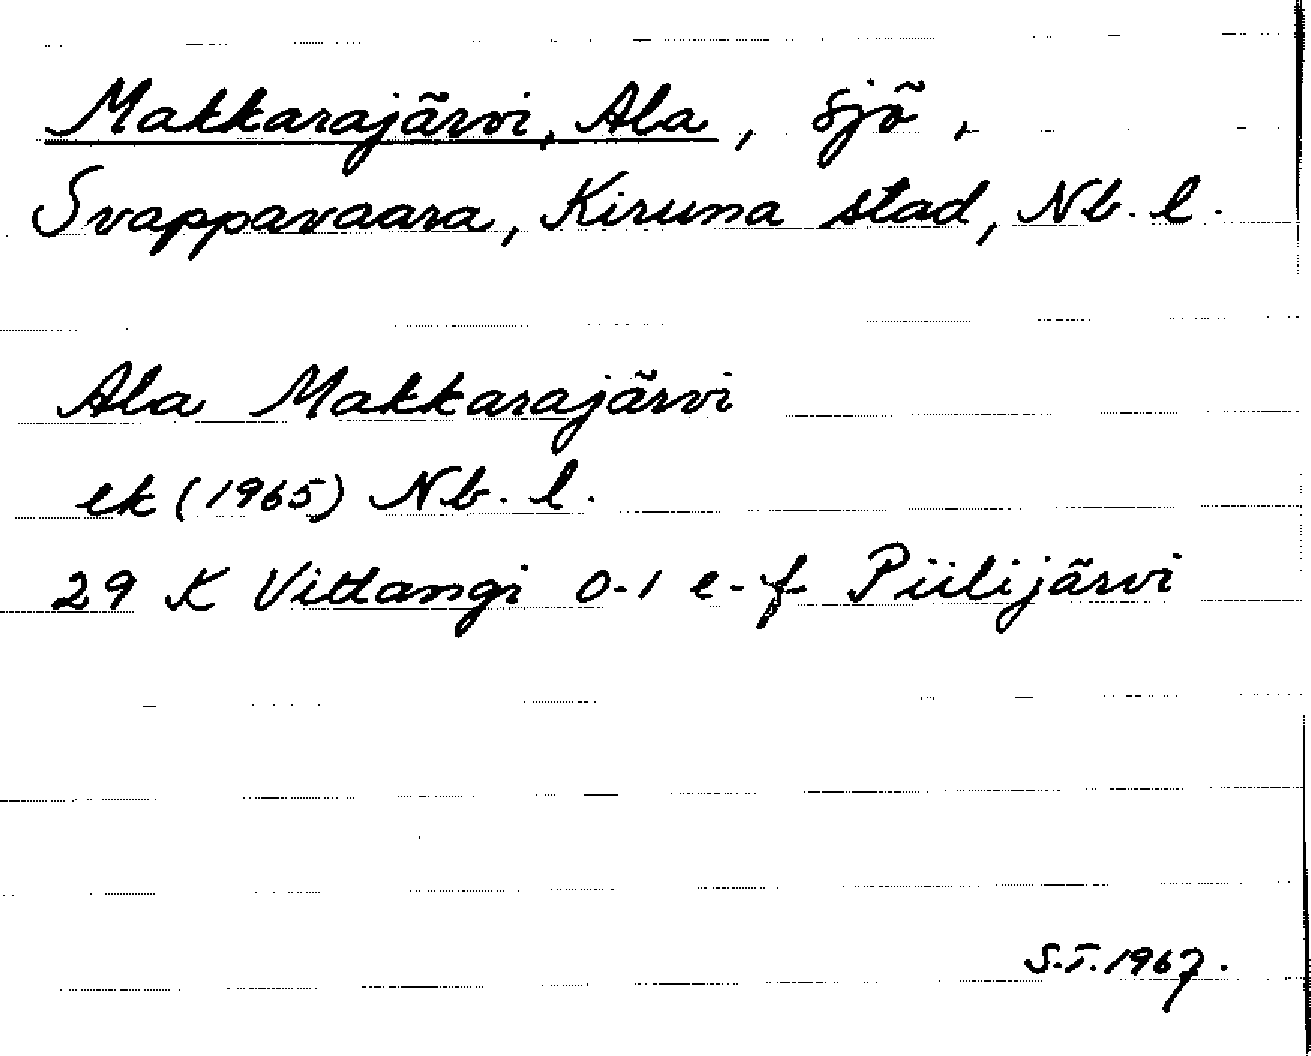 Makkarajärvi, Ala, sjö,
Svappavaara, Kiruna stad, Nb. l.
Ala Makkarajärvi
ek (1965) Nb. l.
29 K Vittangi 0-1 e-f Piilijärvi
S.T. 1967.